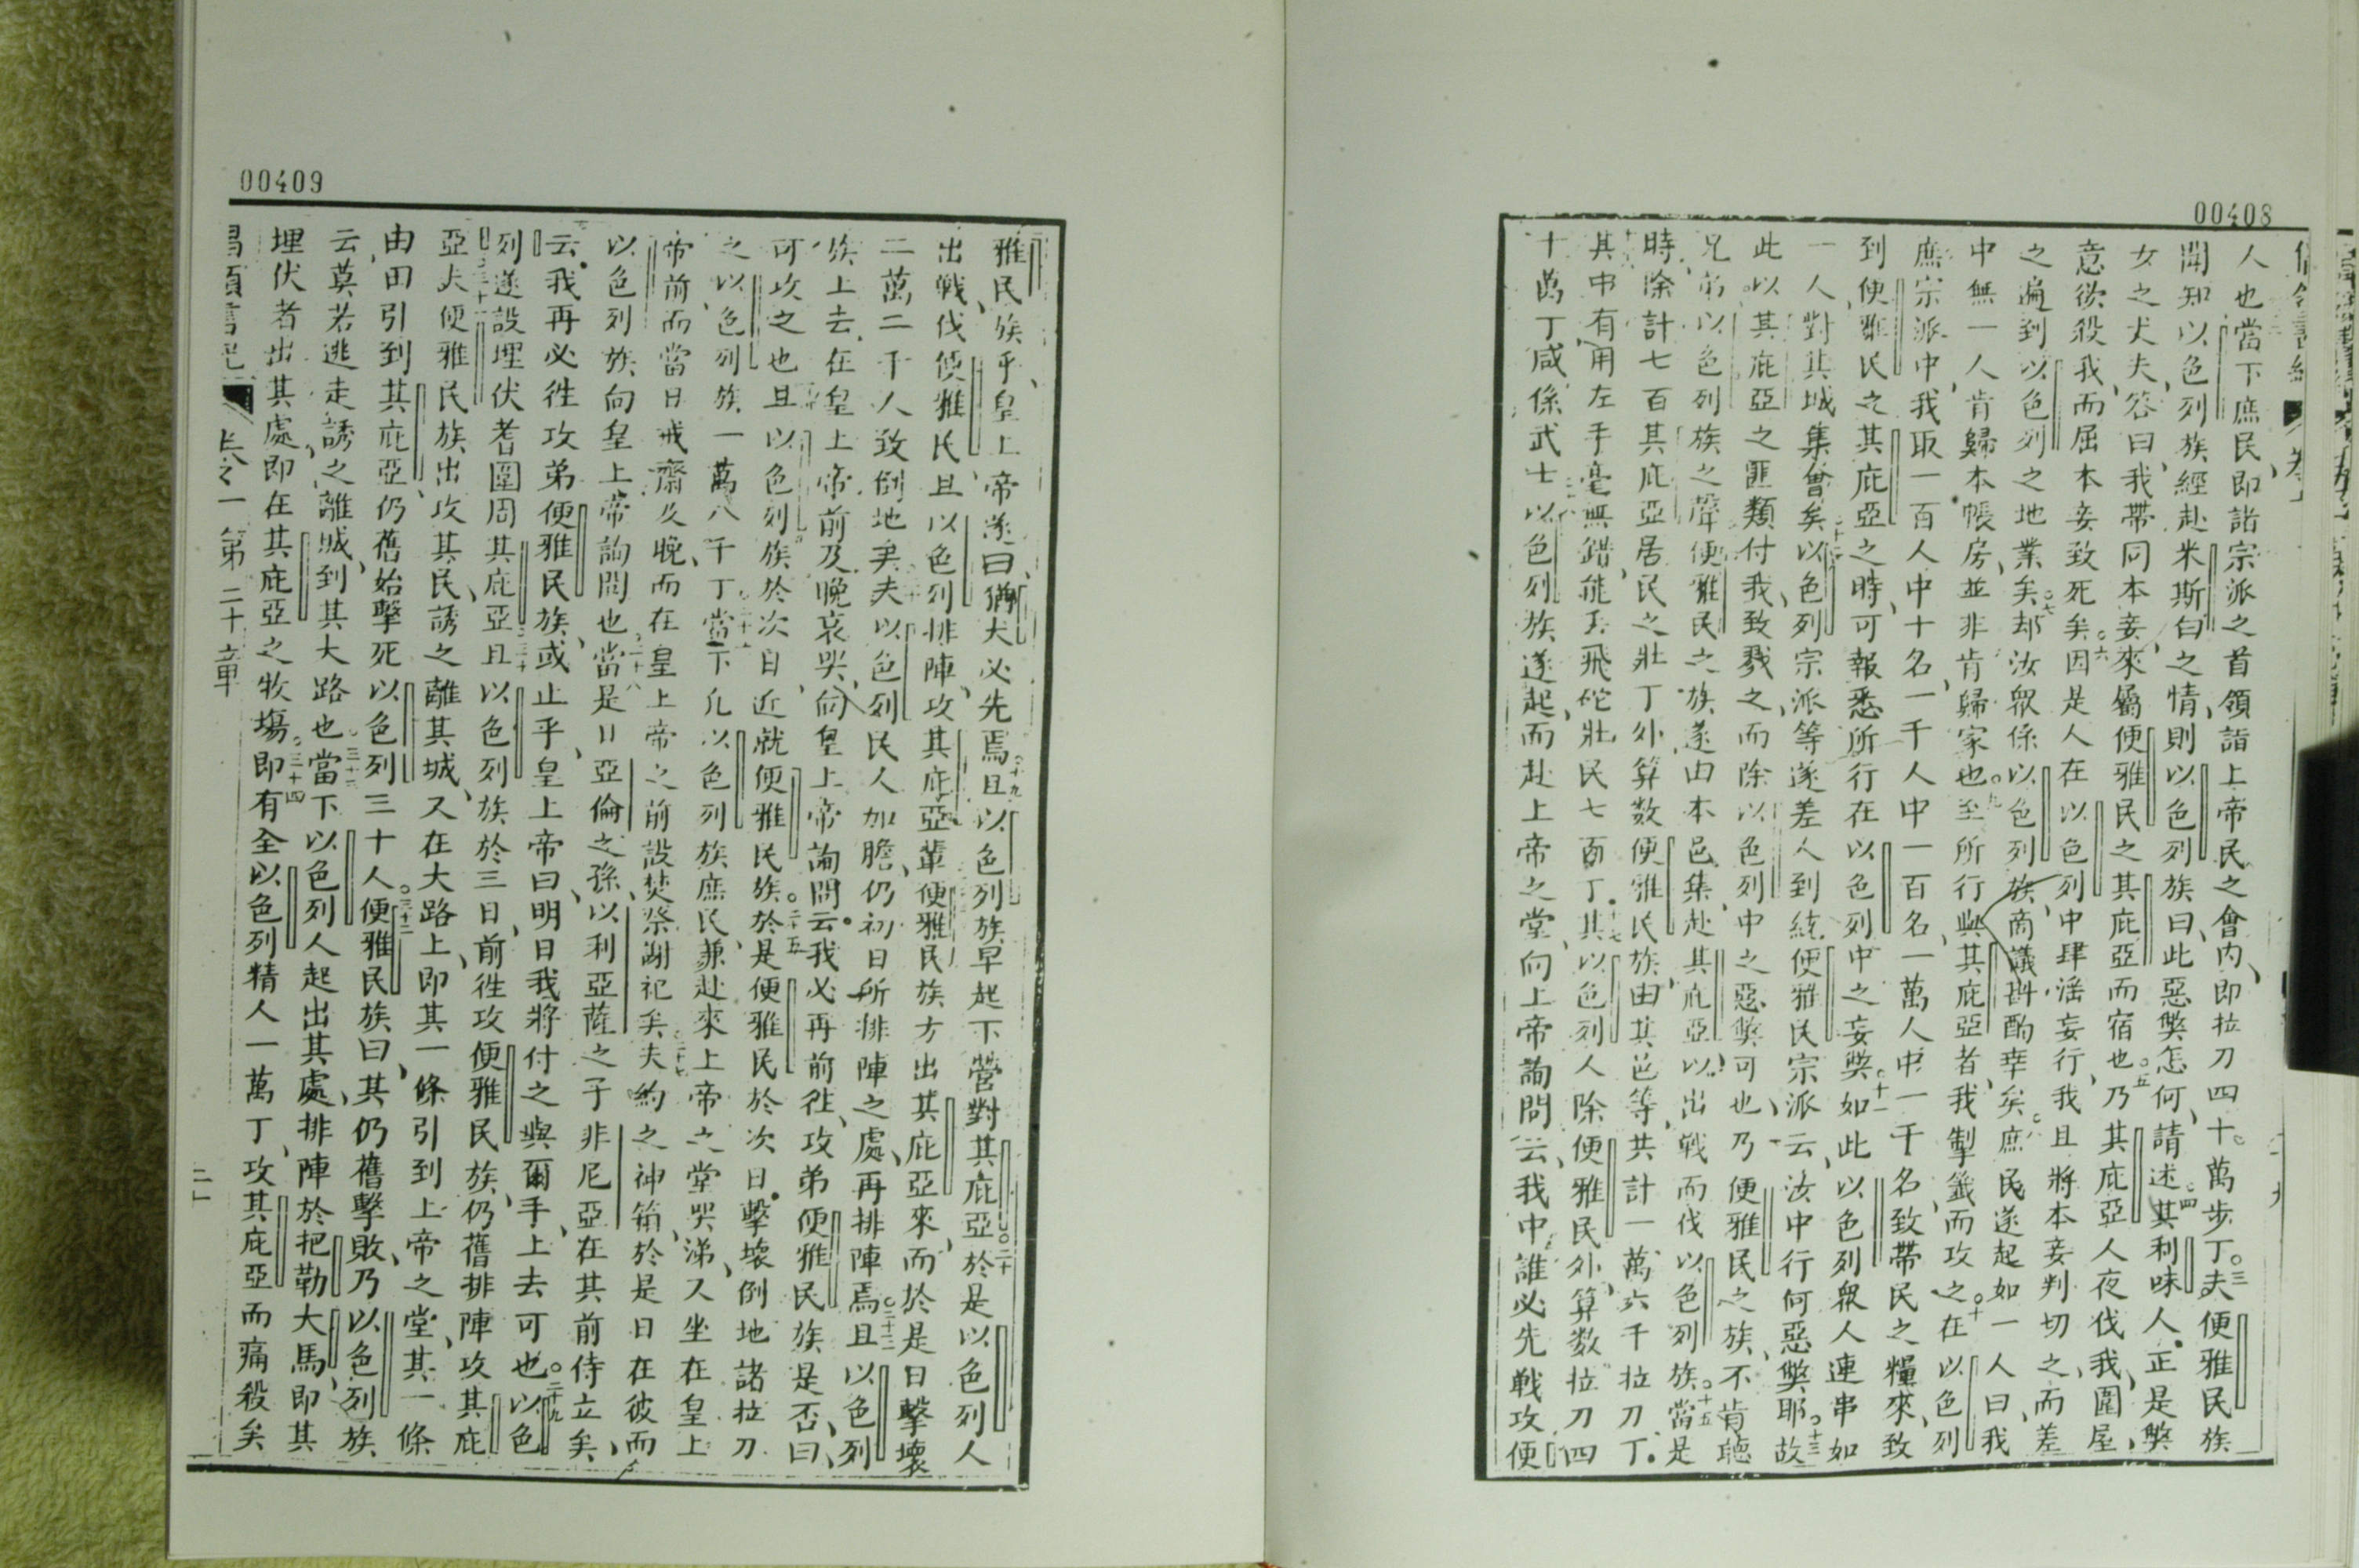 00408
人也當下庶民即諸宗派之首領詣上帝民之會內即拉刀四十萬步丁夫便雅民族
聞知以色列族經赴米斯白之情則以色列族曰此惡弊怎何請述其利味人正是弊
女之丈夫答曰我帶同本妾來屬便雅民之其庇亞而宿也乃其庇亞人夜伐我圍屋
意欲殺我而屈本妾致死矣因是人在以色列中肆滛妄行我且將本妾判切之而差
之遍到以色列之地業矣却汝眾係以色列族商議斟酌幸矣庶民遂起如一人曰我
中無一人肯歸本帳房並非肯歸家也至所行與其庇亞者我掣籤而攻之在以色列
庶宗派中我取一百人中十名一千人中一百名一萬人中一千名致帶民之糧來致
到便雅民之其庇亞之時可報悉所行在以色列中之妄弊如此以色列眾人連串如
一人對其城集會矣以色列宗派等遂差人到統便雅民宗派云汝中行何惡弊耶故
此以其庇亞之匪類付我致戮之而除以色列中之惡弊可也乃便雅民之族不肯聽
兄弟以色列族之聲便雅民之族遂由本邑集赴其庇亞以出戰而伐以色列族當是
時除計七百其庇亞居民之壯丁外算數便雅民族由其邑等共計一萬六千拉刀丁
其中有用左手毫無錯能丟飛砣壯民七百丁其以色列人除便雅民外算数拉刀四
十萬丁咸係武士以色列族遂起而赴上帝之堂向上帝詢問云我中誰必先戰攻便
00409
雅民族乎皇上帝遂曰猶大必先焉且以色列族早起下營對其庇亞於是以色列人
出戰伐便雅民且以色列排陣攻其庇亞輩便雅民族方出其庇亞來而於是日擊壞
二萬二千人致倒地矣夫以色列民人加膽仍初日所排陣之處再排陣焉且以色列
族上去在皇上帝前及晚哀哭向皇上帝詢問云我必再前徃攻弟便雅民族是否曰
可攻之也且以色列族於次日近就便雅民族於是便雅民於次日擊壞倒地諸拉刀
之以色列族一萬八千丁當下凡以色列族庶民兼赴來上帝之堂哭涕又坐在皇上
帝前而當日戒齋及晚而在皇上帝之前設焚祭謝祀矣夫約之神箱於是日在彼而
以色列族向皇上帝詢問也當是日亞倫之孫以利亞薩之子非尼亞在其前侍立矣
云我再必徃攻弟便雅民族或止乎皇上帝曰明日我將付之與爾手上去可也以色
列遂設埋伏者圍周其庇亞且以色列族於三日前徃攻便雅民族仍舊排陣攻其庇
亞夫便雅民族出攻其民誘之離其城又在大路上即其一條引到上帝之堂其一條
由田引到其庇亞仍舊始擊死以色列三十人便雅民族曰其仍舊擊敗乃以色列族
云莫若逃走誘之離城到其大路也當下以色列人起出其處排陣於把勒大馬即其
埋伏者出其處即在其庇亞之牧塲即有全以色列精人一萬丁攻其庇亞而痛殺矣
卷之一第二十章